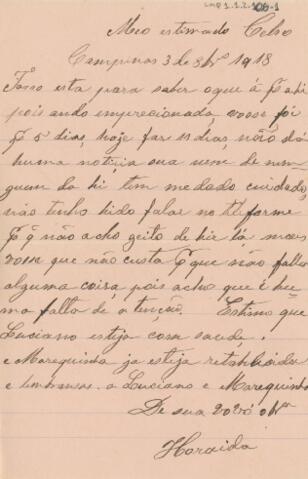 Meo estimado Celso
Campinas 3 de 8bro 1918
Fasso esta para saber oque á q ahi
pois ando imprecionada, voce foi
q 5 dias, hoje faz 11 dias, não dá
huma noticia sua nem de nin
guem da hi tem me dado cuidado,
não tenho hido falar no teleforme
q q não acho geito de hir lá mais
voce que não custa q que não falta
alguma coiza, pois acho que é hu
ma falta de a tenção. Estimo que
Luciano esteja com saude,
e Marequinha ja esteja retabelicida
e lembransas, a Luciano e Marequinha
De sua vovó obra
Horaida